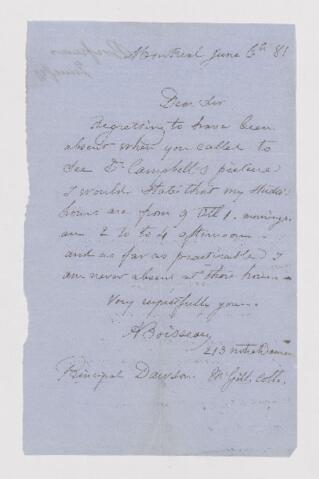 Montreal June 6th 81
Dear Sir
Regretting to have been
absent when you called to
see Dr Campbell's picture
I would state that my Studio
hours are from 9 till 1. mornings
an 2 to 4 afternoon -
and as far as practicable I
am never absent at those hours
Very respectfully yours
A Boisseau
213 notre Dame
Principal Dawson McGill Coll.